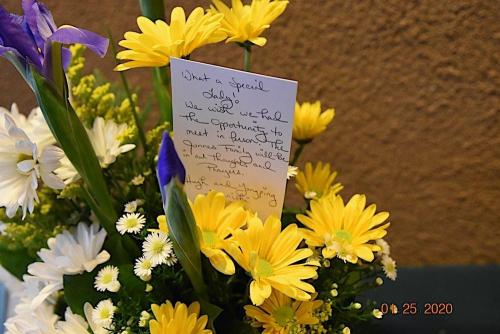 What a Special
Lady!
We wish we had
the opportunity to
meet in person. The
Family will be
in our thoughts and
Prayers.
Hugh and
01 25 2020